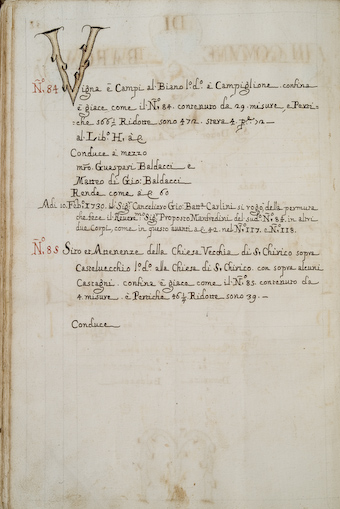 Nº. 84 Vigna è Campi al Biano lº.dº. à Campiglione. confina
è giace come il Nº. 84. contenuto da 29. misure, è Perti-
che 566½ Ridotte sono 472. stara 4. 72
al Libº. H, à
Conduce à mezzo
mrº. Guaspari Baldacci e
Matteo di Gio: Baldacci
Rende come à 60
Adi 10. Fibº. 1730. il Sigr. Cancelliero Gio: Battª. Carlini si rogò della permuta
che fece il Sigr. Proposto Manfredini del sudº. Nº. 84. in altri
due Corpi, come in questo avanti à 42. nel Nº. 117. e Nº. 118.
Nº. 85 Sito ed Attenenze della Chiesa Vecchia di S. Chirico sopra
Casteluecchio lº.dº. alla Chiesa di S. Chirico con sopra alcuni
Castagni. confina è giace come il Nº. 85. contenuto da
4. misure. è Pertiche 46½ Ridotte sono 39.—
Conduce